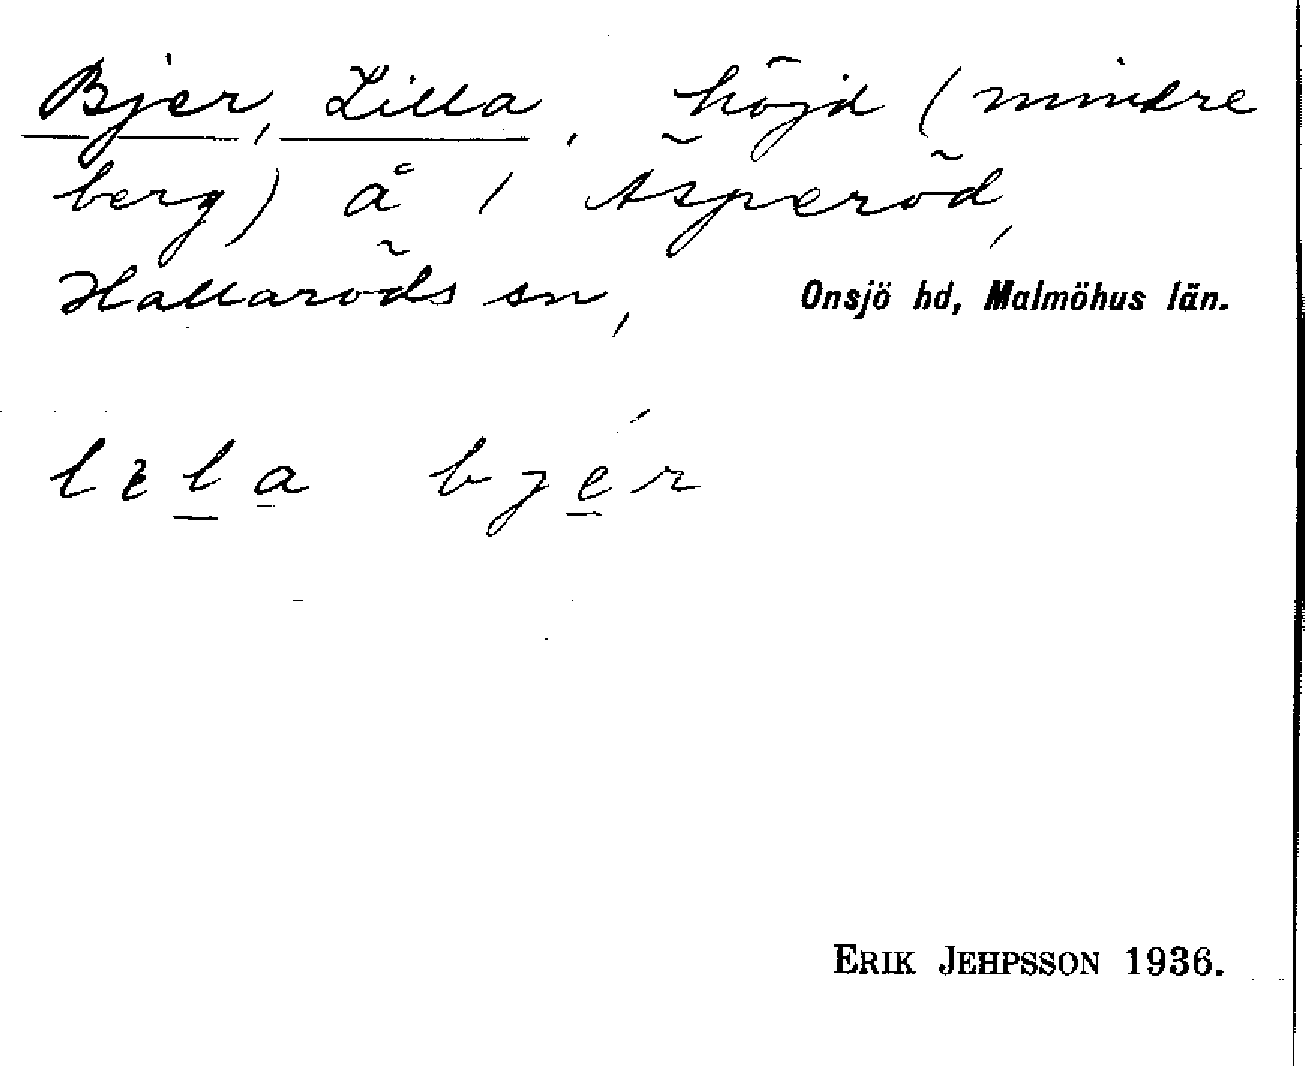 Bjer, Lilla, höjd (mindre
berg) å 1 Äsperöd,
Hallaröds sn, Onsjö hd, Malmöhus län.
bjér
ERIK JEHPSSON 1936.